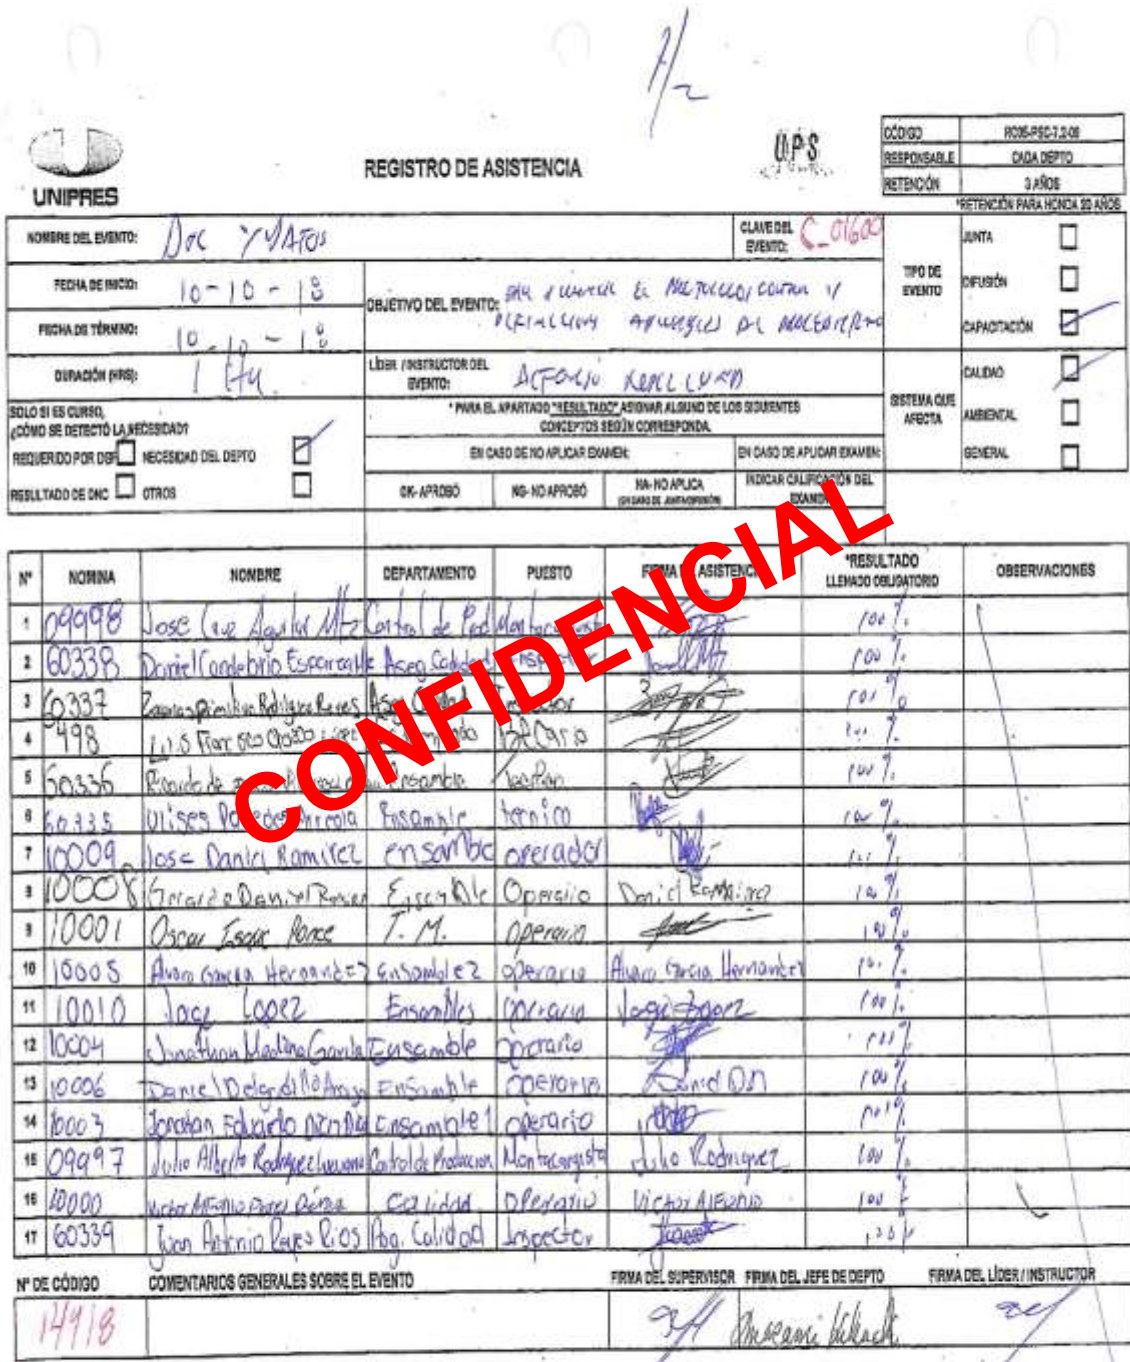 1/2
UNIPRES
REGISTRO DE ASISTENCIA
UPS
CÓDIGO RC05-PSC-7.2-06
RESPONSABLE CADA DEPTO
RETENCIÓN 3 AÑOS
*RETENCIÓN PARA HONDA 20 AÑOS
NOMBRE DEL EVENTO: Doc Y DATOS
CLAVE DEL EVENTO: C_01600
FECHA DE INICIO: 10-10-18
FECHA DE TÉRMINO: 10-10-18
DURACIÓN (HRS): 1 Hr.
OBJETIVO DEL EVENTO:
LÍDER / INSTRUCTOR DEL EVENTO:
TIPO DE EVENTO
JUNTA
DIFUSIÓN
CAPACITACIÓN
SISTEMA QUE AFECTA
CALIDAD
AMBIENTAL
GENERAL
SOLO SI ES CURSO,
¿CÓMO SE DETECTÓ LA NECESIDAD?
REQUERIDO POR DSP NECESIDAD DEL DEPTO
RESULTADO DE DNC OTROS
* PARA EL APARTADO "RESULTADO" ASIGNAR ALGUNO DE LOS SIGUIENTES
CONCEPTOS SEGÚN CORRESPONDA.
EN CASO DE NO APLICAR EXAMEN: EN CASO DE APLICAR EXAMEN:
OK- APROBÓ NG- NO APROBÓ NA- NO APLICA INDICAR CALIFICACIÓN DEL EXAMEN
CONFIDENCIAL
Nº NOMINA NOMBRE DEPARTAMENTO PUESTO FIRMA DE ASISTENCIA *RESULTADO LLENADO OBLIGATORIO OBSERVACIONES
1 09998 Jose Cruz Aguilar Mtz Control de Prod Montacarguista 100%
2 60338 Daniel Esparza Aseg Calidad Inspector 100%
3 60337 Rodriguez Reyes Aseg Calidad Inspector 100%
4 498 Luis Francisco Becario 100%
5 60336 Ricardo de Ensamble 100%
6 60335 Ulises Paredes Ensamble tecnico 100%
7 10009 Jose Daniel Ramirez ensamble operador 100%
8 10008 Gerardo Daniel Ensamble Operario Daniel Ramirez 100%
9 10001 Oscar Isaac Ponce T. M. operario 100%
10 10005 Alvaro Garcia Hernandez Ensamble 2 operario Alvaro Garcia Hernandez 100%
11 10010 Jorge Lopez Ensambles operario Jorge Lopez 100%
12 10004 Jonathan Medina Garcia Ensamble operario 100%
13 10006 Daniel Delgadillo Ensamble operario Daniel DA 100%
14 10003 Jonatan Eduardo Ensamble 1 operario 100%
15 09997 Julio Alberto Rodriguez Control de Produccion Montacargista Julio Rodriguez 100%
16 10000 Victor Alfonso Perez Calidad Operario Victor Alfonso 100%
17 60339 Juan Antonio Reyes Rios Calidad Inspector 100%
Nº DE CÓDIGO COMENTARIOS GENERALES SOBRE EL EVENTO FIRMA DEL SUPERVISOR FIRMA DEL JEFE DE DEPTO FIRMA DEL LÍDER / INSTRUCTOR
14918